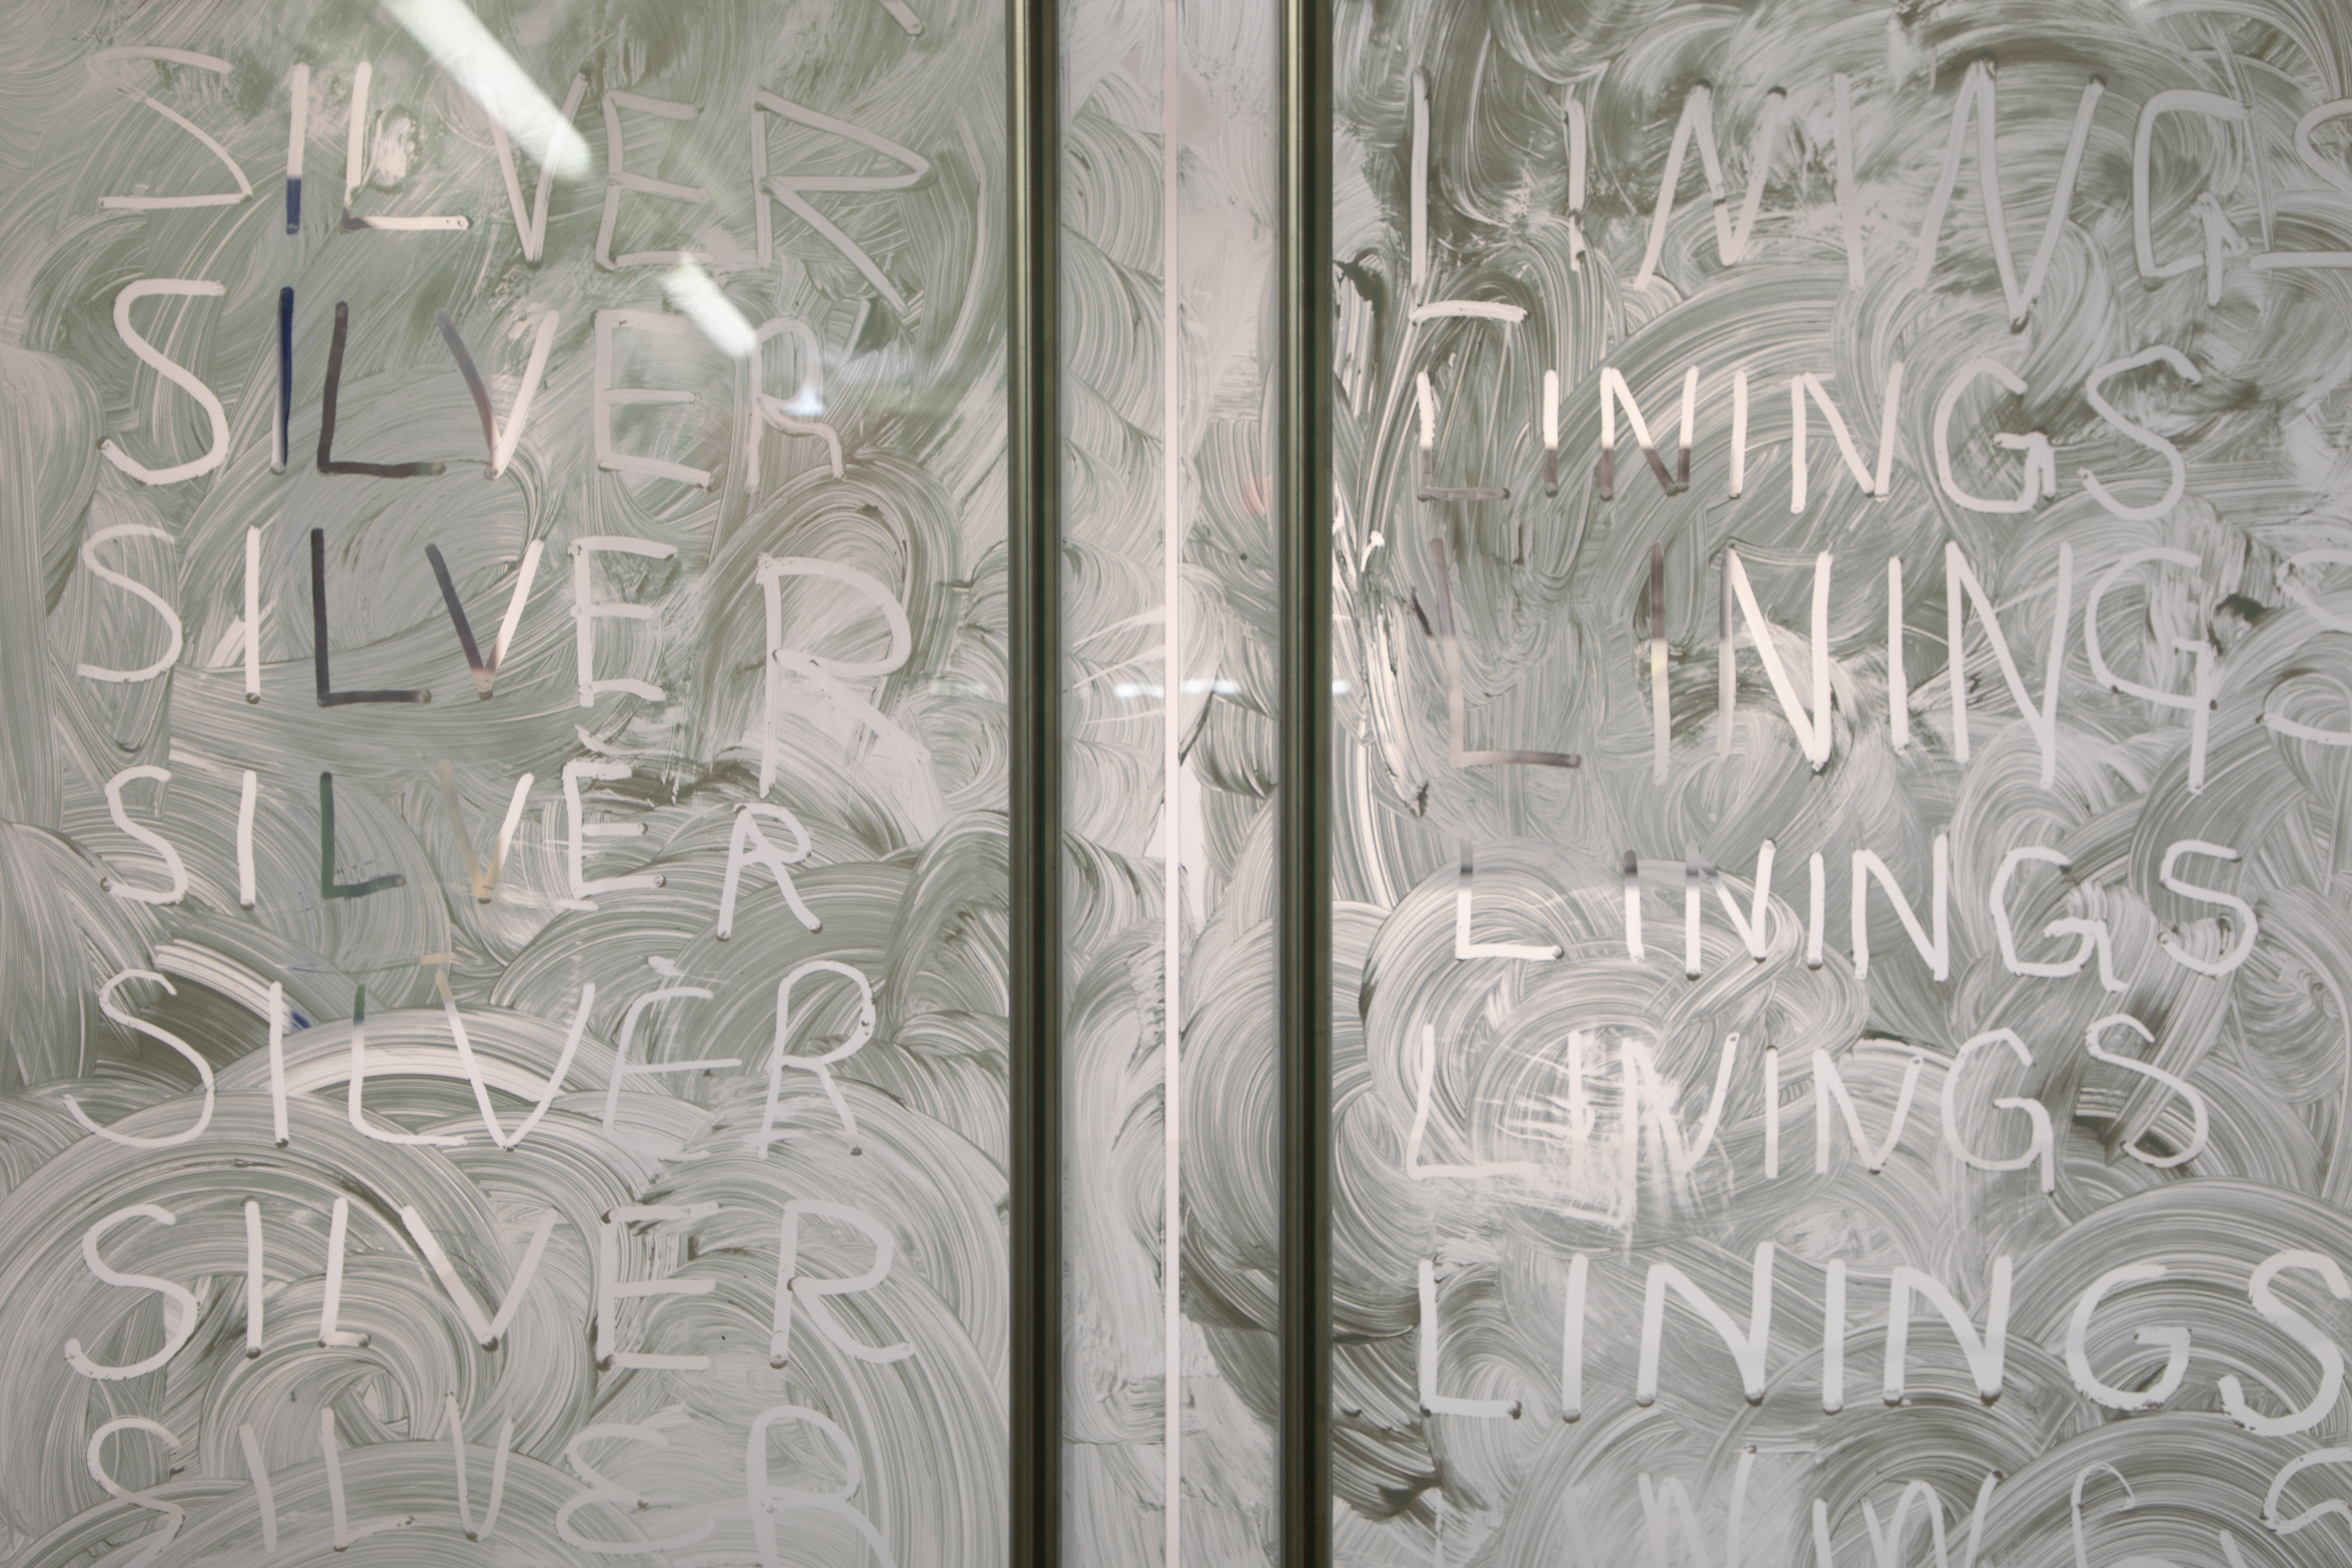 SILVER LININGS
SILVER LININGS
SILVER LININGS
SILVER LININGS
SILVER LININGS
SILVER LININGS
SILVER